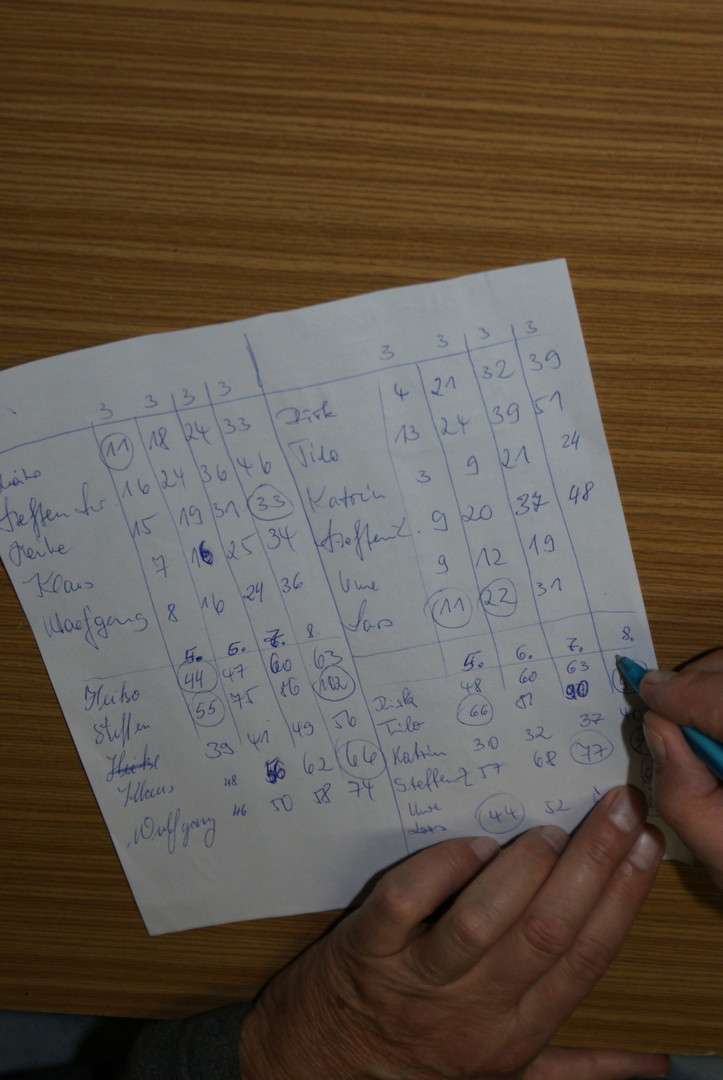 3 3 3 3
11 18 24 33
16 24 36 46
Heike 15 19 31 33
Klaus 7 16 25 34
Wolfgang 8 16 24 36
3 3 3 3
Dirk 4 21 32 39
Tilo 13 24 39 51
Katrin 3 9 21 24
Steffen Z. 9 20 37 48
Uwe 9 12 19
Lars 11 22 31
5. 6. 7. 8.
Heiko 44 47 60 63
Steffen 55 75 86 102
Heike 39 41 49 56
Klaus 48 56 62 66
Wolfgang 46 50 58 74
5. 6. 7. 8.
Dirk 48 60 63
Tilo 66 81 90
Katrin 30 32 37
Steffen Z 57 68 77
Uwe 44 52
Lars